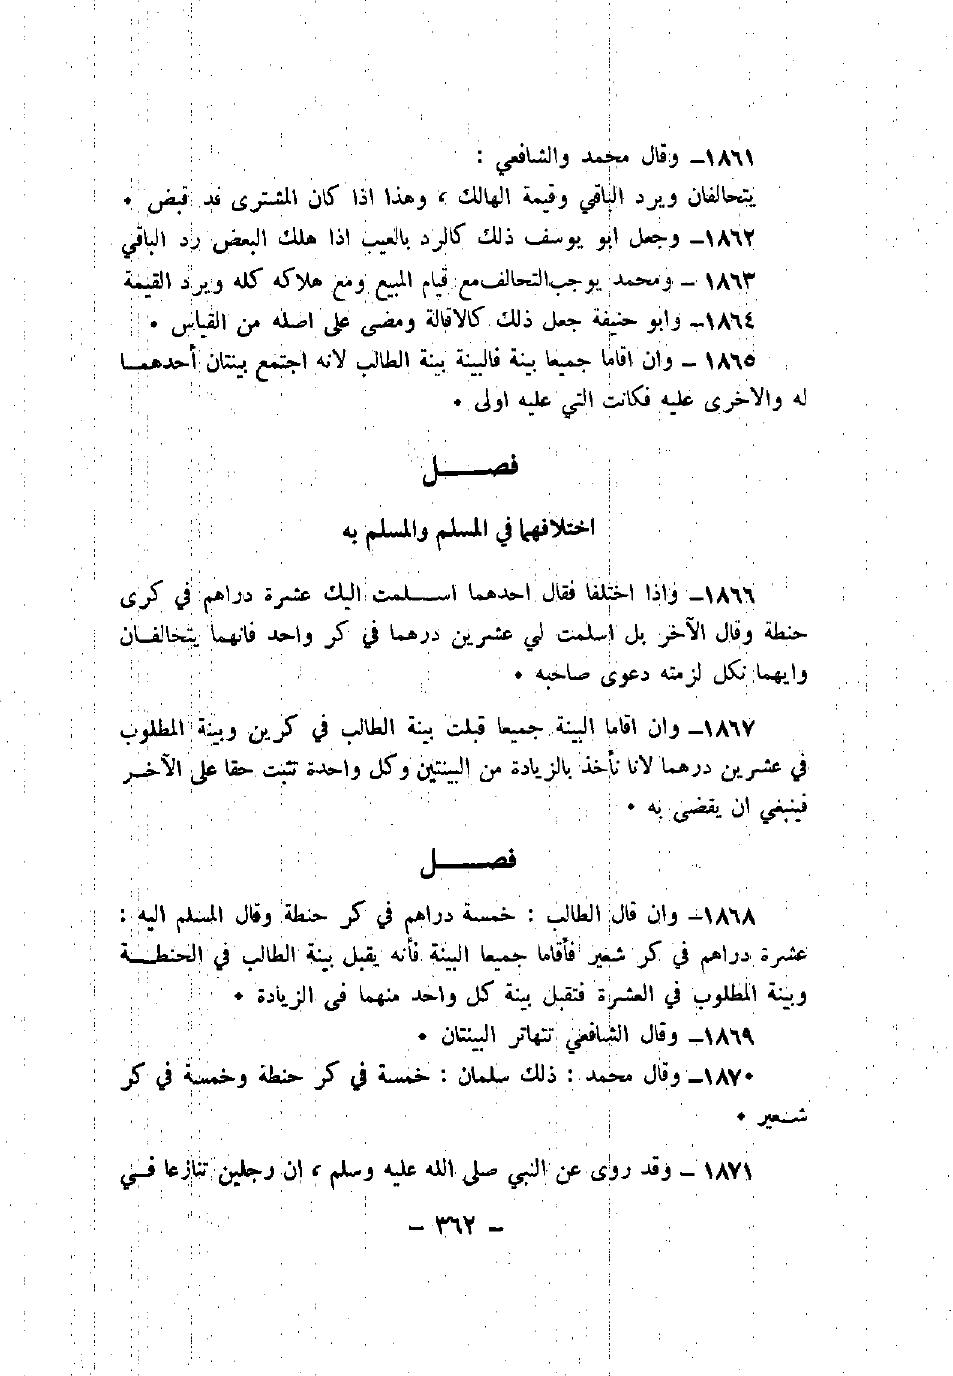 ١٨٦١ــ وقال محمد والشافعي :
يتحالفان ويرد الباقي وقيمة الهالك ، وهذا اذا كان المشترى قد قبض .
١٨٦٢ــ وجعل ابو يوسف ذلك كالرد بالعيب اذا هلك البعض رد الباقي
١٨٦٣ ــ ومحمد يوجب التحالف مع قيام المبيع ومع هلاكه كله ويرد القيمة
١٨٦٤ــ وابو حنيفة جعل ذلك كالاقالة ومضى على اصله من القياس .
١٨٦٥ ــ وان اقاما جميعا بينة فالبينة بينة الطالب لانه اجتمع بينتان أحدهمــا
له والاخرى عليه فكانت التي عليه اولى .
فصــــــل
اختلافهما في المسلم والمسلم به
١٨٦٦ــ واذا اختلفا فقال احدهما اســــلمت اليك عشرة دراهم في كرى
حنطة وقال الآخر بل اسلمت لي عشرين درهما في كر واحد فانهما يتحالفــان
وايهما نكل لزمته دعوى صاحبه .
١٨٦٧ــ وان اقاما البينة جميعا قبلت بينة الطالب في كرين وبينة المطلوب
في عشرين درهما لانا نأخذ بالزيادة من البينتين وكل واحدة تثبت حقا على الآخــر
فينبغي ان يقضى به .
فصــــــل
١٨٦٨ــ وان قال الطالب : خمسة دراهم في كر حنطة وقال المسلم اليه :
عشرة دراهم في كر شعير فأقاما جميعا البينة فأنه يقبل بينة الطالب في الحنطــــة
وبينة المطلوب في العشرة فتقبل بينة كل واحد منهما فى الزيادة .
١٨٦٩ــ وقال الشافعي تتهاتر البينتان .
١٨٧٠ــ وقال محمد : ذلك سلمان : خمسة في كر حنطة وخمسة في كر
شــعير .
١٨٧١ ــ وقد روى عن النبي صلى الله عليه وسلم ، ان رجلين تنازعا فــي
ــ ٣٦٢ ــ